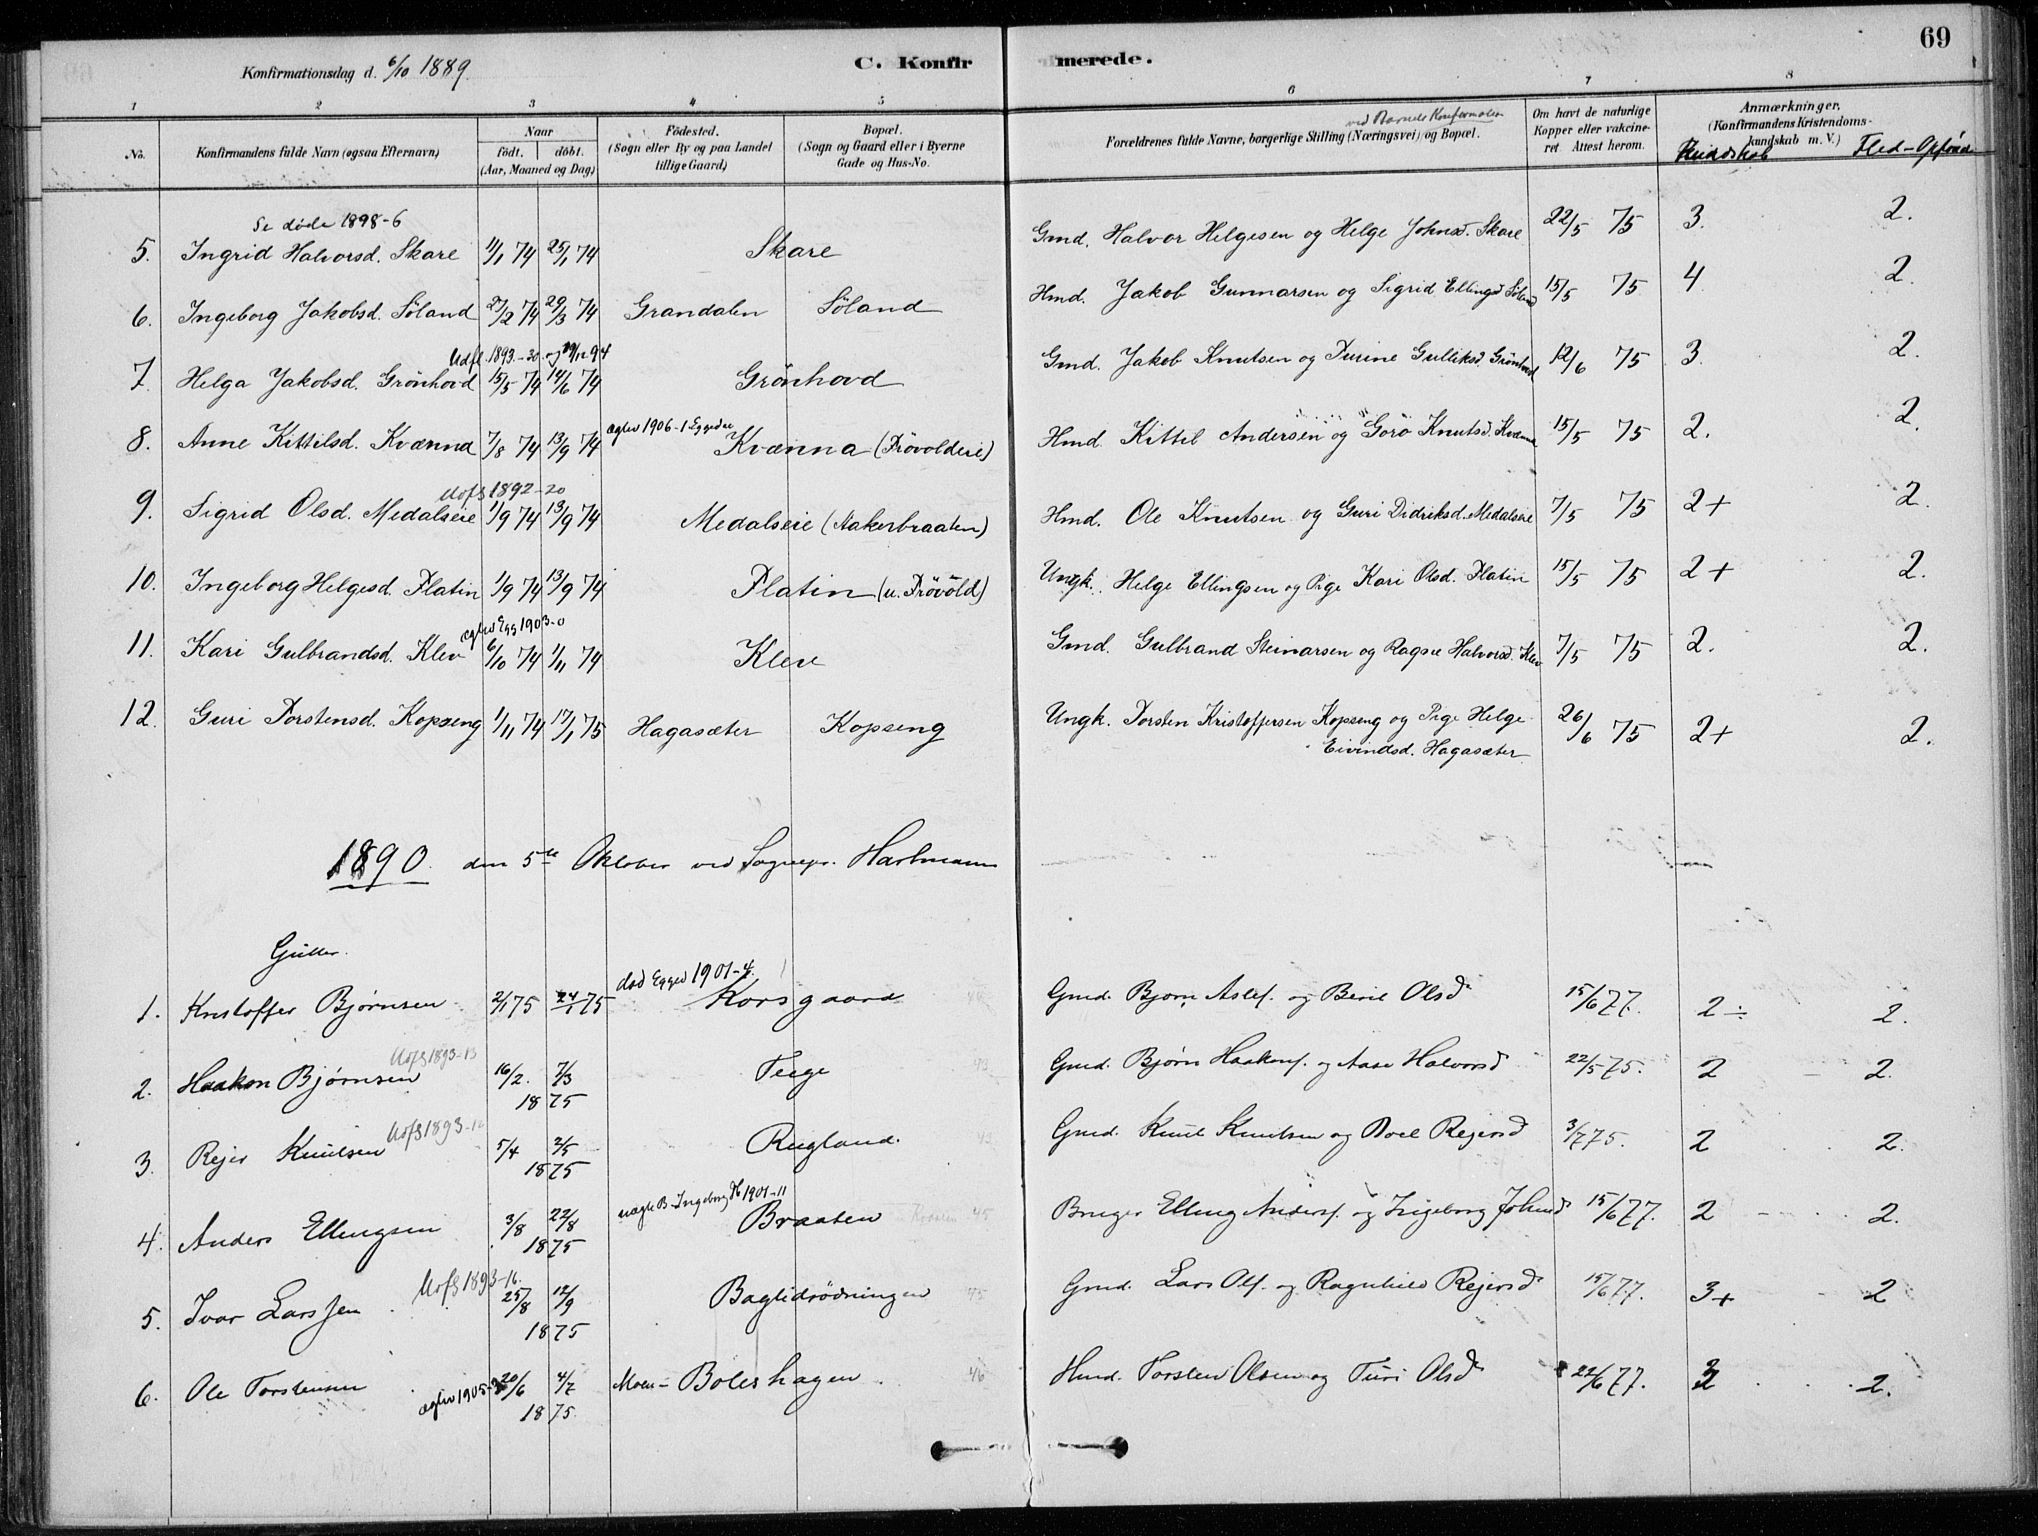 69
Konfirmationsdag d. 6/10 1889.
C. Konfir merede.
1 2 3 4 5 6 7 8
No.
Konfirmandens fulde Navn (ogsaa Efternavn)
Naar
født. døbt.
(Aar, Maaned og Dag)
Fødested.
(Sogn eller By og paa Landet
tillige Gaard)
Bopæl.
(Sogn og Gaard eller i Byerne
Gade og Hus-No.
ved Barnets Konfirmation
Forældrenes fulde Navne, borgerlige Stilling (Næringsvei) og Bopæl.
Om havt de naturlige
Kopper eller vakcine-
ret Attest herom.
Anmærkninger,
(Konfirmandens Kristendoms-
kundskab m. V.)
Kundskab Flid - Opførsel
Se døde 1898-6
5. Ingrid Halvorsd. Skare 11/1 74 25/1 74 Skare Gmd. Halvor Helgesen og Helge Johnsd. Skare 22/5 75 3. 2.
6. Ingeborg Jakobsd. Söland 27/2 74 29/3 74 Grandalen Söland Hmd. Jakob Gunnarsen og Sigrid Ellingsd Söland 15/5 75 4 2.
Udfl. 1893-30 og 94
7. Helga Jakobsd. Grönhovd 15/5 74 14/6 74 Grönhovd Gmd. Jakob Knutsen og Turine Gulliksd. Grönhovd 12/6 75 3. 2.
ægtev 1906-1 Eggedal
8. Anne Kittilsd. Kvænna 7/8 74 13/9 74 Kvænna (Prövoldeie) Hmd. Kittil Andersen og Gorö Knutsd. Kvænna 15/5 75 2. 2.
Uofs 1892-20
9. Sigrid Olsd. Medalseie 1/9 74 13/9 74 Medalseie (Aakerbraaten) Hmd. Ole Knutsen og Guri Didriksd. Medalseie 7/5 75 2+ 2.
10. Ingeborg Helgesd. Flatin 1/9 74 13/9 74 Flatin (u. Prövold) Ungk. Helge Ellingsen og Pige Kari Olsd. Flatin 15/5 75 2+ 2.
ægtev Egg 1903-0
11. Kari Gulbrandsd. Klev 6/10 74 1/11 74 Klev Gmd. Gulbrand Steinarsen og Ragne Halvorsd. Klev 7/5 75 2. 2.
12. Guri Torstensd. Kopseng 1/11 74 17/1 75 Hagasæter Kopseng Ungk. Torsten Kristoffersen Kopseng og Pige Helge 26/6 75 2+ 2.
Eivindsd. Hagasæter
1890. den 5te Oktober ved Sognepr. Hartmann
Gutter.
død Egged 1901-4.
1. Kristoffer Bjørnsen 2/1 75 24/1 75 Korsgaard Gmd. Bjørn Aslef. og Beret Olsd 15/6 77. 2÷ 2.
Uofs 1893-13
2. Haakon Bjørnsen 16/2. 7/3 1875 Teige Gmd. Bjørn Haakonf. og Aase Halvorsd 22/5 75. 2 2.
Uofs 1893-
3. Rejer Knutsen 5/4 2/5 1875 Rugland. Gmd. Knut Knutsen og Boel Rejersd 3/7 75. 2 2.
B-Ingeborg 1901-11
4. Anders Ellingsen 3/8 22/8 1875 Braaten Bruger Elling Andersf. og Ingeborg Johnsd 15/6 77. 2 2.
Uofs 1893-16.
5. Ivar Larssen 25/8 12/9 1875 Baglidrödningen Gmd. Lars Olf. og Ragnhild Rejersd 15/6 77. 3+ 2
ægtev 1905-
6. Ole Torstensen 20/6 4/7 1875. Moen- Boleshagen. Hmd. Torsten Olsen og Turi Olsd 22/6 77. 2.